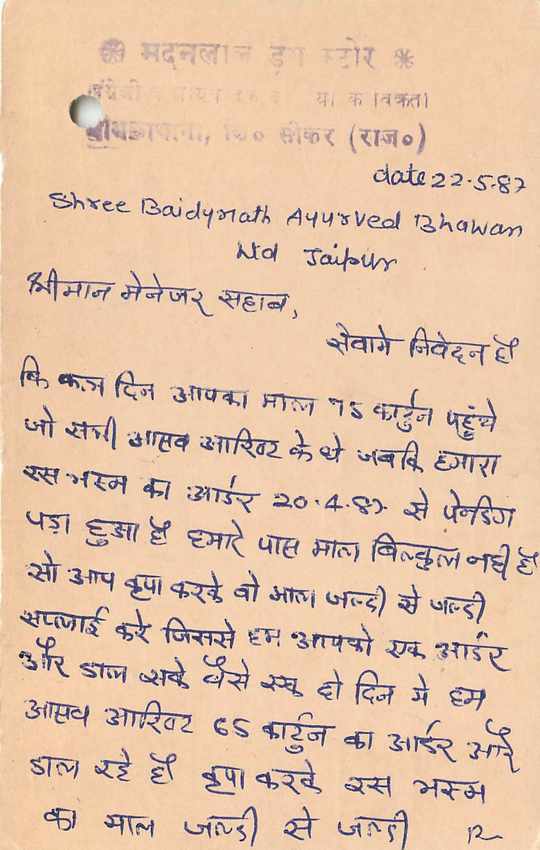 मदनलाल ड्रग स्टोर
सीकर (राज०)
date 22.5.87
Shree Baidynath Ayurved Bhawan
Ltd Jaipur
श्रीमान मेनेजर सहाब,
सेवामे निवेदन है
कि कल दिन आपका माल 75 कार्टुन पहुंचे
जो सभी आसव आरिष्ट के थे जबकि हमारा
रस भस्म का आर्डर 20.4.87 से पेनडिग
पड़ा हुआ है हमारे पास माल बिल्कुल नही है
सो आप कृपा करके वो माल जल्दी से जल्दी
सप्लाई करे जिससे हम आपको एक आर्डर
और डाल सके वैसे एक दो दिन मे हम
आसव आरिष्ट 65 कार्टुन का आर्डर और
डाल रहे है कृपा करके रस भस्म
का माल जल्दी से जल्दी